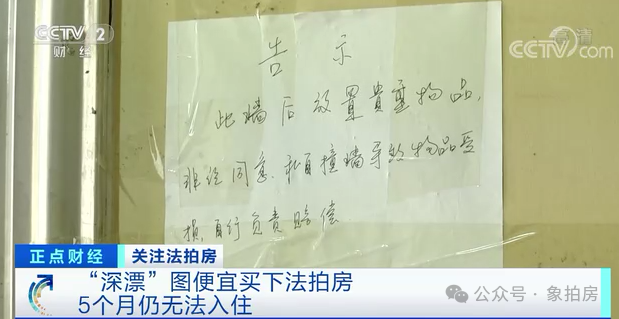 CCTV 2
财经
高清
CCTV.com
告示
此墙后放置贵重物品,
非经同意、私自撞墙导致物品受
损,自行负责赔偿
正点财经
关注法拍房
“深漂”图便宜买下法拍房
5个月仍无法入住
公众号·象拍房